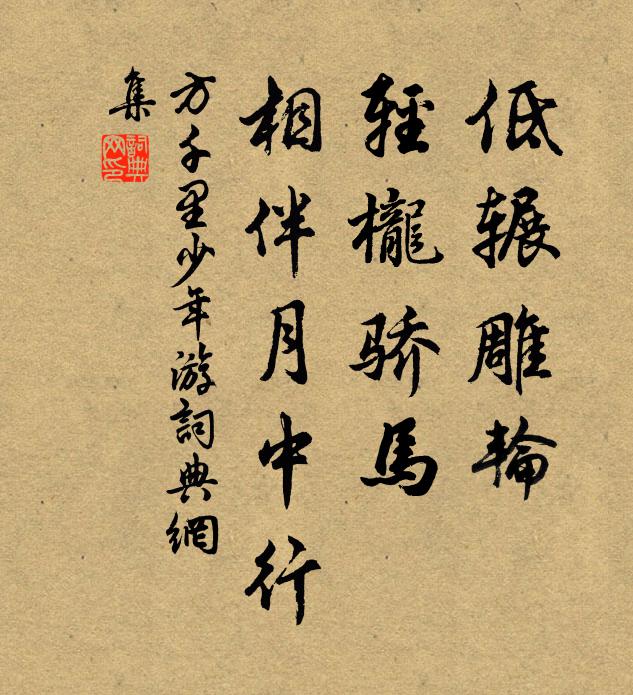 低辗雕輪
輕櫳骄馬
相伴月中行
方千里少年游詞典網
集
詞典网印